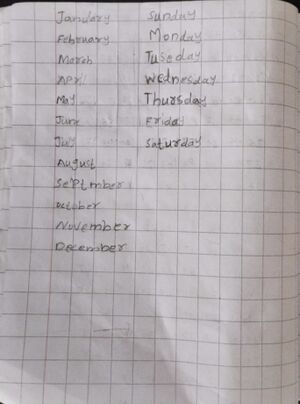 January Sunday
February Monday
March Tuseday
Apri Wednesday
May Thursday
June Friday
July Saturday
August
Septmber
october
November
December